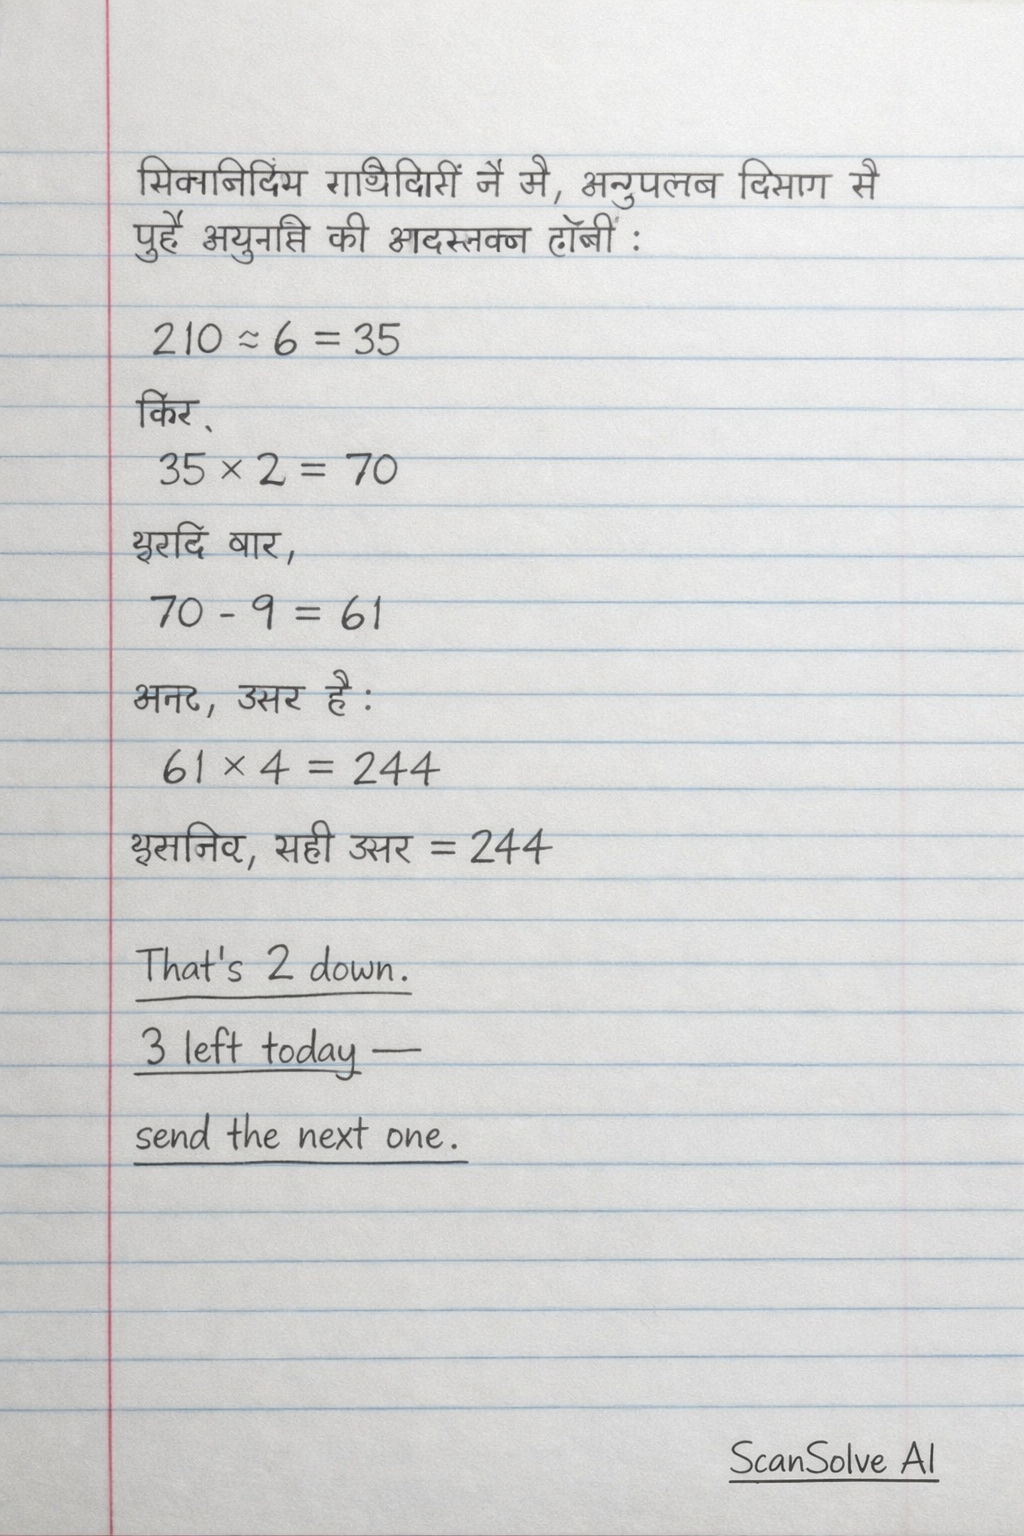 सिक्तानिदिंम गाथिदिारीं नै मै, अनुपलब दिमाग सै
पुहै अयुनति की आदस्तक्ज हॉबीं :
210 ≈ 6 = 35
किंर.
35 × 2 = 70
बार,
70 - 9 = 61
अनट, उसर है :
61 × 4 = 244
सही उसर = 244
That's 2 down.
3 left today —
send the next one.
ScanSolve AI